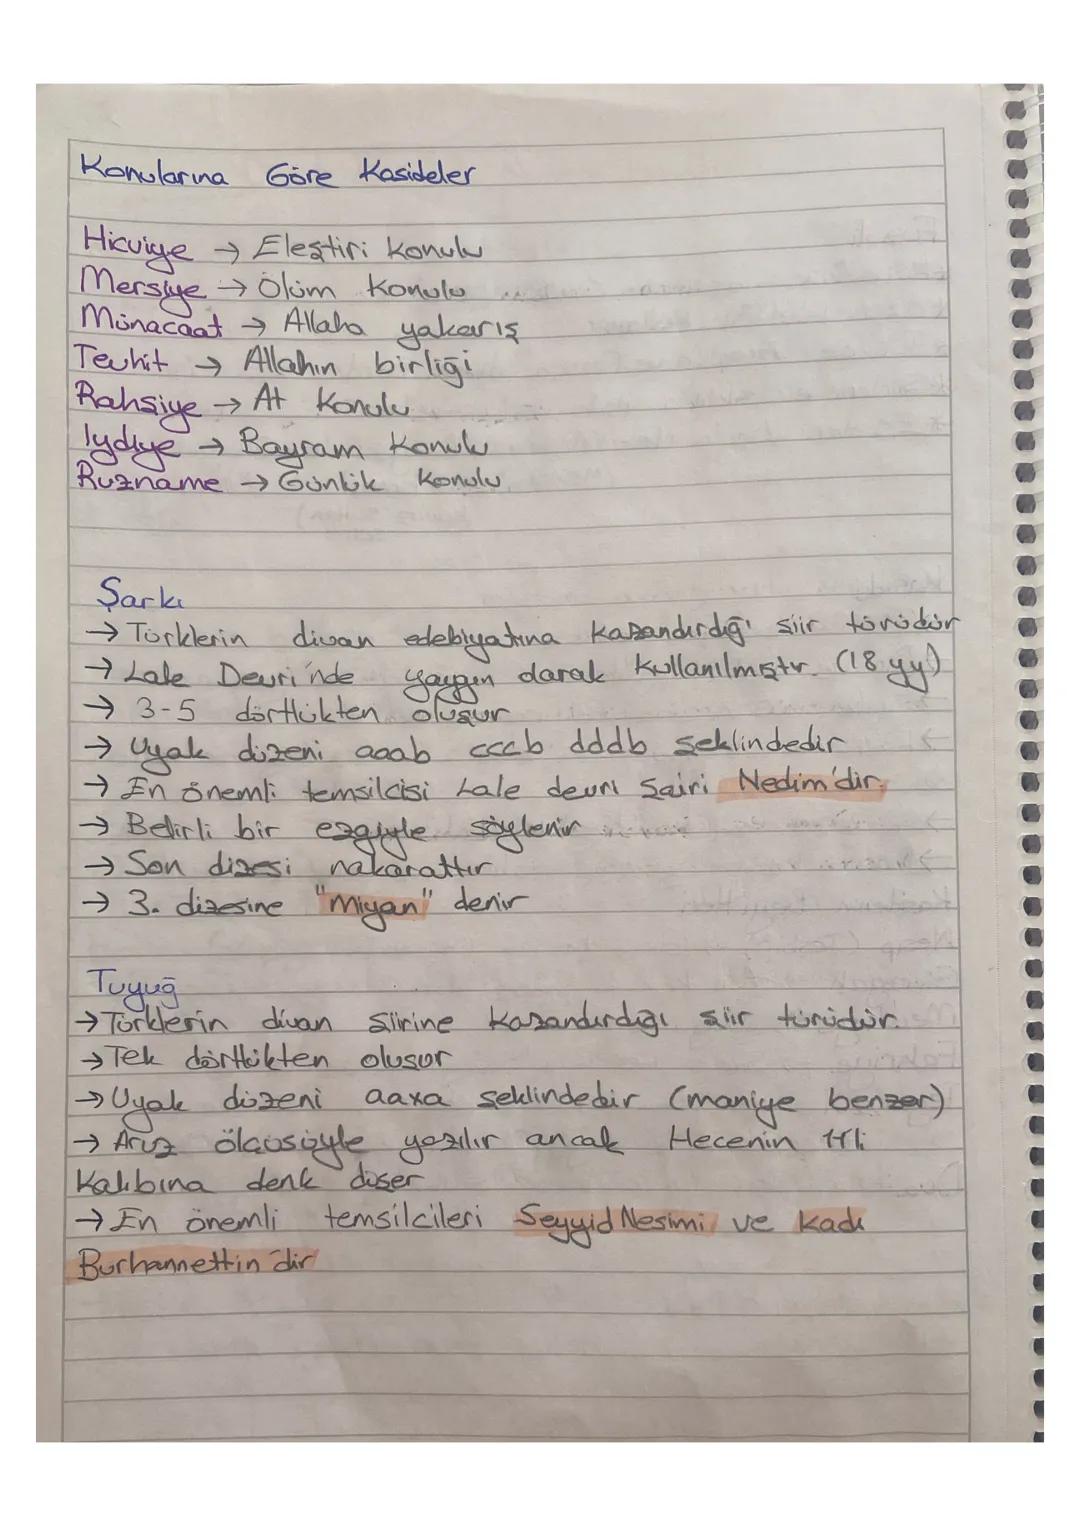 Konularına Göre Kasideler
Hicviye → Eleştiri konulu
Mersiye → Ölüm konulu
Münacaat → Allaha yakarış
Tevhit → Allahın birliği
Rahşiye → At konulu
Iydiye → Bayram konulu
Ruzname → Günlük konulu
Şarkı
→ Türklerin divan edebiyatına kazandırdığı şiir türüdür
→ Lale Devri'nde yaygın olarak kullanılmıştır. (18 yy)
→ 3-5 dörtlükten oluşur
→ Uyak düzeni aaab cccb dddb şeklindedir
→ En önemli temsilcisi Lale devri şairi Nedim'dir.
→ Belirli bir ezgiyle söylenir
→ Son dizesi nakarattır
→ 3. dizesine "miyan" denir
Tuyuğ
→ Türklerin divan şiirine kazandırdığı şiir türüdür.
→ Tek dörtlükten oluşur
→ Uyak düzeni aaxa şeklindedir (maniye benzer)
→ Aruz ölçüsüyle yazılır ancak Hecenin 11'li
kalıbına denk düşer
→ En önemli temsilcileri Seyyid Nesimi ve Kadı
Burhannettin'dir